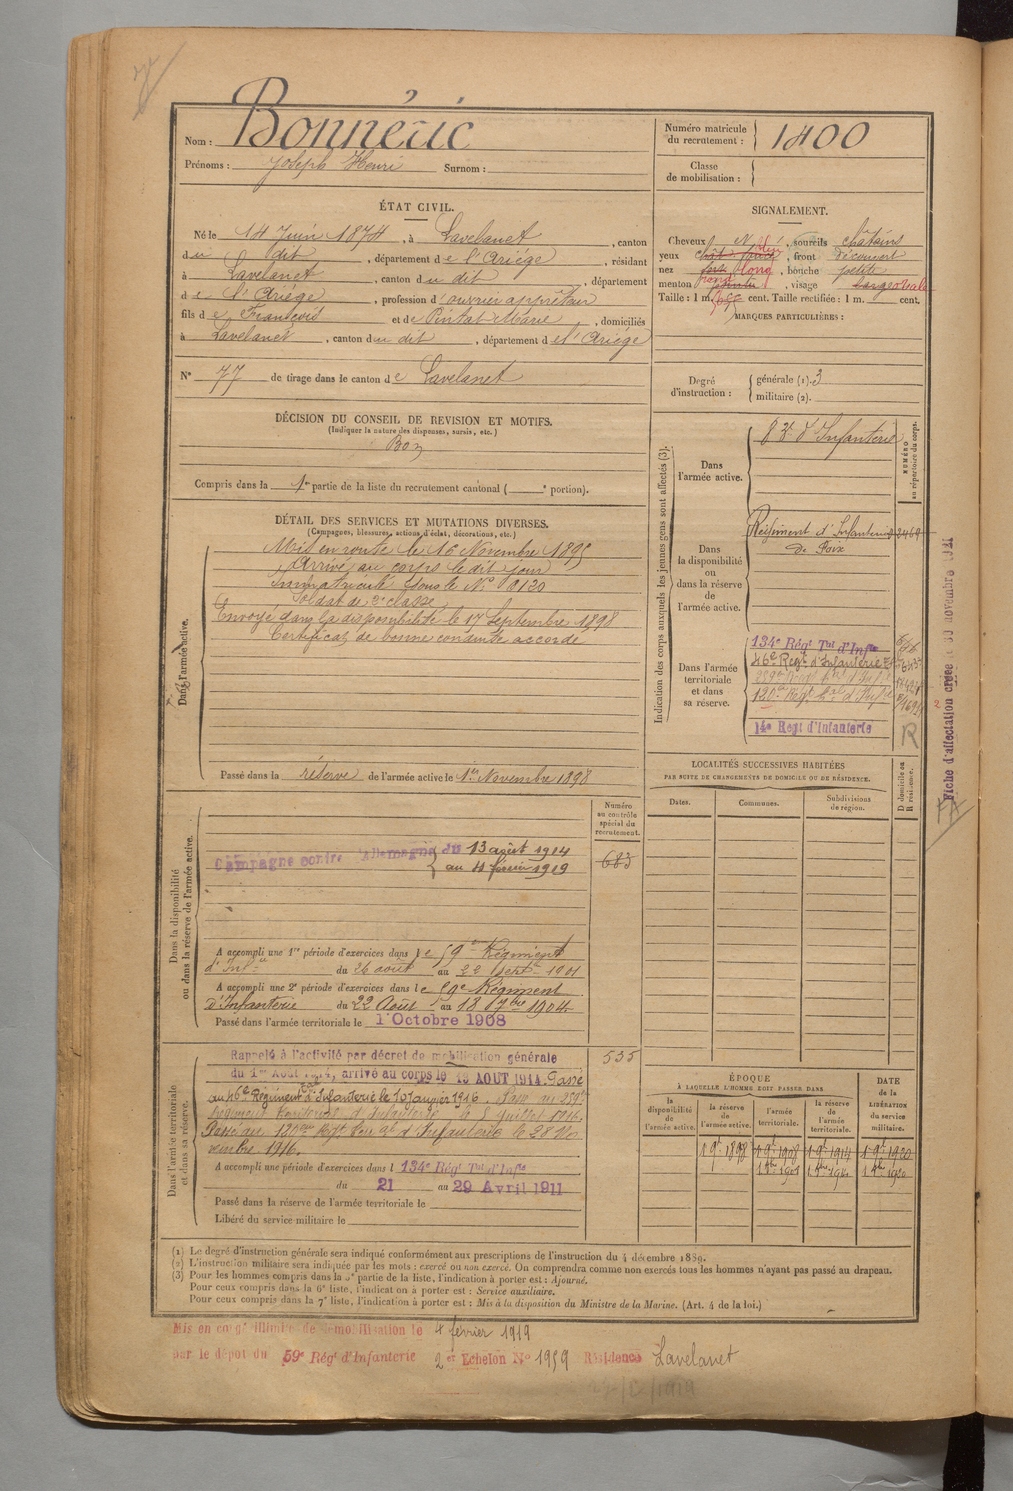 Nom : Bonnéric
Prénoms : Joseph Henri Surnom :
Numéro matricule du recrutement : 1400
Classe de mobilisation :
ÉTAT CIVIL.
Né le 14 Juin 1874, à Lavelanet, canton
du dit, département de l'Ariége, résidant
à Lavelanet, canton du dit, département
de l'Ariége, profession d'ouvrier apprêteur
fils de François et de Pintat Marie, domiciliés
à Lavelanet, canton du dit, département de l'Ariége
N° 77 de tirage dans le canton de Lavelanet
DÉCISION DU CONSEIL DE REVISION ET MOTIFS.
(Indiquer la nature des dispenses, sursis, etc.)
Bon
Compris dans la 1re partie de la liste du recrutement cantonal ( e portion).
SIGNALEMENT.
Cheveux N, sourcils châtains
yeux chât bleu, front découvert
nez long, bouche petite
menton rond, visage large ovale
Taille : 1 m. cent. Taille rectifiée : 1 m. cent.
MARQUES PARTICULIÈRES :
Degré d'instruction :
générale (1). 3
militaire (2).
DÉTAIL DES SERVICES ET MUTATIONS DIVERSES.
(Campagnes, blessures, actions d'éclat, décorations, etc.)
Dans l'armée active.
Mis en route le 16 Novembre 1895
Arrivé au corps le dit jour
Immatriculé sous le N°
Soldat de 2e classe
Envoyé dans la disponibilité le 17 Septembre 1898
Certificat de bonne conduite accordé
Passé dans la réserve de l'armée active le 1er Novembre 1898
Indication des corps auxquels les jeunes gens sont affectés (3).
NUMÉRO au répertoire du corps.
Dans l'armée active.
83e d'Infanterie
Dans la disponibilité ou dans la réserve de l'armée active.
Régiment d'Infanterie 2469
de Foix
Dans l'armée territoriale et dans sa réserve.
134e Régt Tal d'Infie
46e Régt d'Infanterie
14e Régt d'Infanterie
R
Fiche d'affectation créée le novembre 1921
FA
LOCALITÉS SUCCESSIVES HABITÉES
PAR SUITE DE CHANGEMENTS DE DOMICILE OU DE RÉSIDENCE.
Dates. Communes. Subdivisions de région.
D domicile ou R résidence.
Dans la disponibilité ou dans la réserve de l'armée active.
Numéro au contrôle spécial du recrutement.
683
Campagne contre l'Allemagne du 13 août 1914
au 4 février 1919
A accompli une 1re période d'exercices dans le 59e Régiment
d'Infie du 26 août au 22 sept 1901
A accompli une 2e période d'exercices dans le 59e Régiment
d'Infanterie du 22 Août au 18 7bre 1904
Passé dans l'armée territoriale le 1 Octobre 1908
Dans l'armée territoriale et dans sa réserve.
535
Rappelé à l'activité par décret de mobilisation générale
du 1er Août 1914, arrivé au corps le 13 AOUT 1914. Passé
au 46e Régiment d'Infanterie le 10 Janvier 1916. Passé au 259e
Régiment territorial d'Infanterie le 8 Juillet 1916.
Passé au Régt d'Infanterie le 28 No
vembre 1916.
A accompli une période d'exercices dans l 134e Régt Tal d'Infie
du 21 au 29 Avril 1911
Passé dans la réserve de l'armée territoriale le
Libéré du service militaire le
ÉPOQUE
À LAQUELLE L'HOMME DOIT PASSER DANS
la disponibilité de l'armée active.
la réserve de l'armée active.
l'armée territoriale.
la réserve de l'armée territoriale.
DATE DE LA LIBÉRATION du service militaire.
1 9t 1898 1 9t 1908 1 9t 1914 1 9t 1920
(1) Le degré d'instruction générale sera indiqué conformément aux prescriptions de l'instruction du 4 décembre 1889.
(2) L'instruction militaire sera indiquée par les mots : exercé ou non exercé. On comprendra comme non exercés tous les hommes n'ayant pas passé au drapeau.
(3) Pour les hommes compris dans la 5e partie de la liste, l'indication à porter est : Ajourné.
Pour ceux compris dans la 6e liste, l'indication à porter est : Service auxiliaire.
Pour ceux compris dans la 7e liste, l'indication à porter est : Mis à la disposition du Ministre de la Marine. (Art. 4 de la loi.)
Mis en congé illimité de démobilisation le 4 février 1919
par le dépôt du 59e Régt d'Infanterie 2e Echelon N° 1959 Résidence Lavelanet